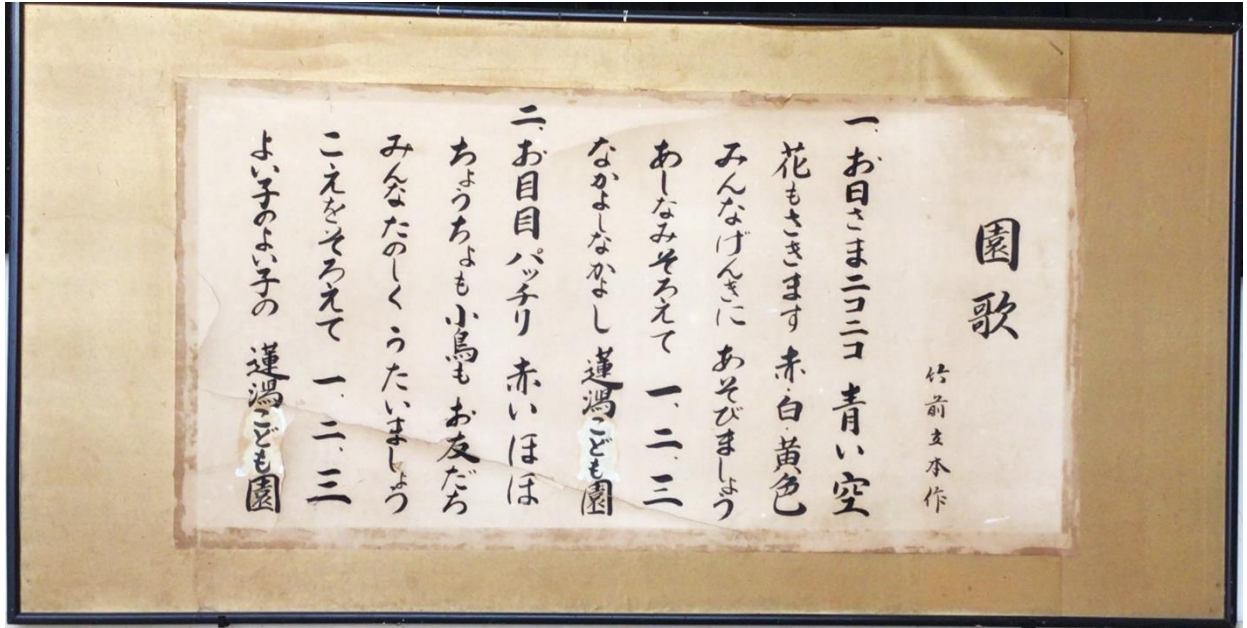 園歌
竹前立本作
一、お日さまニコニコ 青い空
花もさきます 赤・白・黄色
みんなげんきに あそびましょう
あしなみそろえて 一、二、三
なかよしなかよし 蓮潟こども園
二、お目目パッチリ 赤いほほ
ちょうちょも小鳥も お友だち
みんなたのしく うたいましょう
こえをそろえて 一、二、三
よい子のよい子の 蓮潟こども園